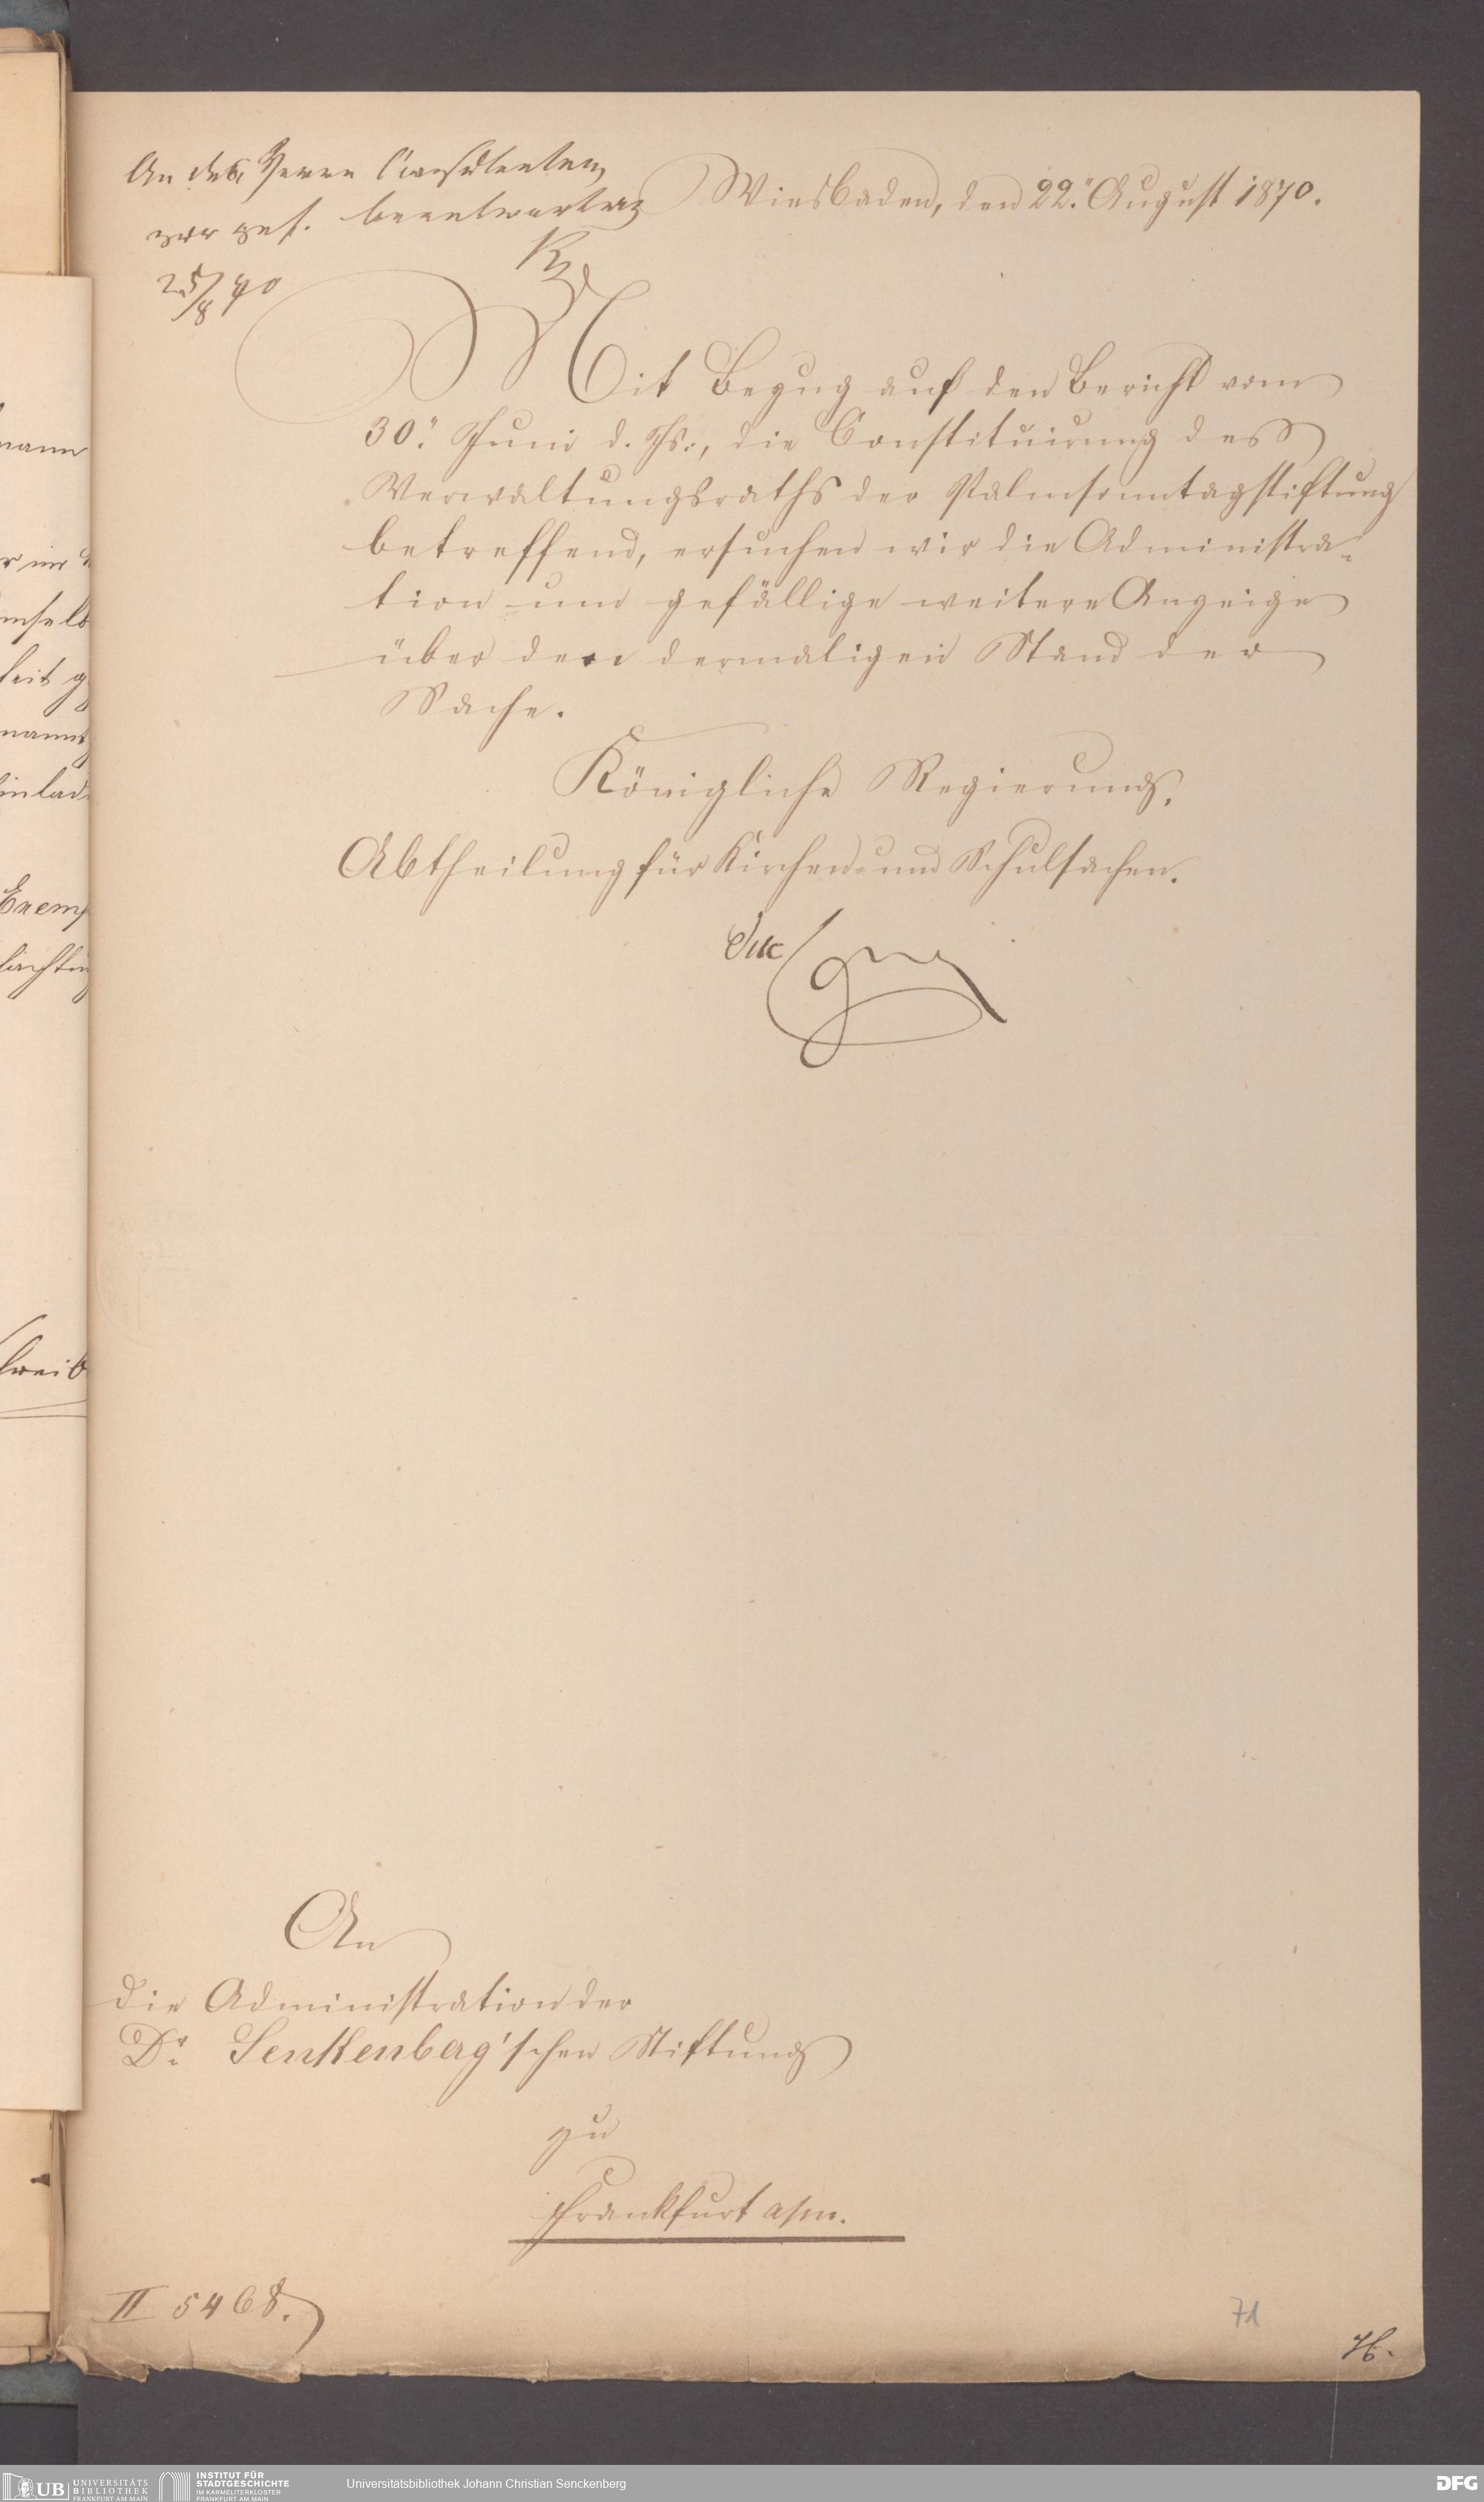 An den Herrn Consulenten
zur gef. beantwortung
25/8 70
Wiesbaden, den 22.ᵗ August 1870.
Mit Bezug auf den Bericht vom
30.ᵗ Juni d. Js., die Constituirung des
Verwaltungsraths der Palmsonntagstiftung
betreffend, ersuchen wir die Administra-
tion um gefällige weitere Anzeige
über den dermaligen Stand der
Sache.
Königliche Regierung,
Abtheilung für Kirchen- und Schulsachen.
An
die Administration der
Dr. Senkenberg'schen Stiftung
zu
Frankfurt a/m.
II 5468.
71
H.
UB UNIVERSITÄTS
BIBLIOTHEK
FRANKFURT AM MAIN
INSTITUT FÜR
STADTGESCHICHTE
IM KARMELITERKLOSTER
FRANKFURT AM MAIN
Universitätsbibliothek Johann Christian Senckenberg
DFG